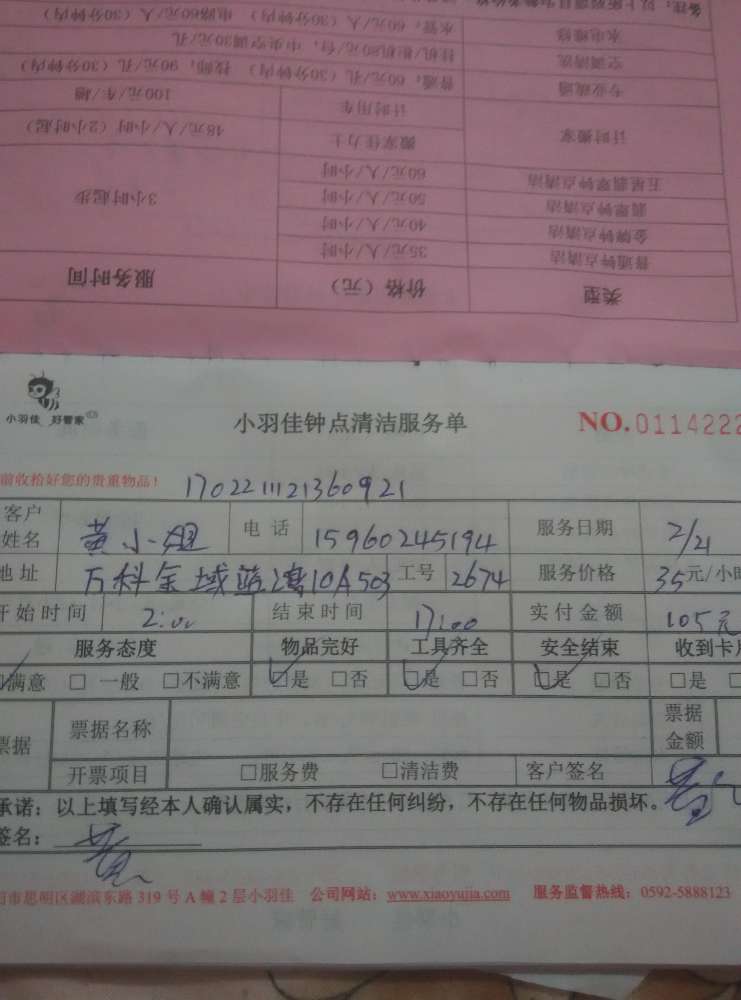 类型 价格（元） 服务时间
普通钟点清洁 35元/人/小时
金牌钟点清洁 40元/人/小时
翡翠钟点清洁 50元/人/小时 3小时起步
五星翡翠钟点清洁 60元/人/小时
计时搬家 搬家佳力士 48元/人/小时（2小时起）
计时用车 100元/车/趟
专业疏通 普通：60元/孔（30分钟内） 技师：90元/孔（30分钟内）
空调清洗 挂机/柜机80元/台，中央空调30元/孔
水电维修 水管：60元/人（30分钟内） 电路60元/人（30分钟内）
备注：以上
小羽佳 好管家 小羽佳钟点清洁服务单 NO.0114222
前收拾好您的贵重物品！ 1702211121360921
客户姓名 黄小姐 电话 15960245194 服务日期 2/21
地址 万科金域蓝湾10A503 工号 2674 服务价格 35元/小时
开始时间 2:00 结束时间 17:00 实付金额 105元
服务态度 物品完好 工具齐全 安全结束 收到卡
☑满意 □一般 □不满意 ☑是 □否 ☑是 □否 ☑是 □否 □是 □
票据 票据名称 票据金额
开票项目 □服务费 □清洁费 客户签名 黄
承诺：以上填写经本人确认属实，不存在任何纠纷，不存在任何物品损坏。
签名： 黄
市思明区湖滨东路319号A幢2层小羽佳 公司网站：www.xiaoyujia.com 服务监督热线：0592-5888123